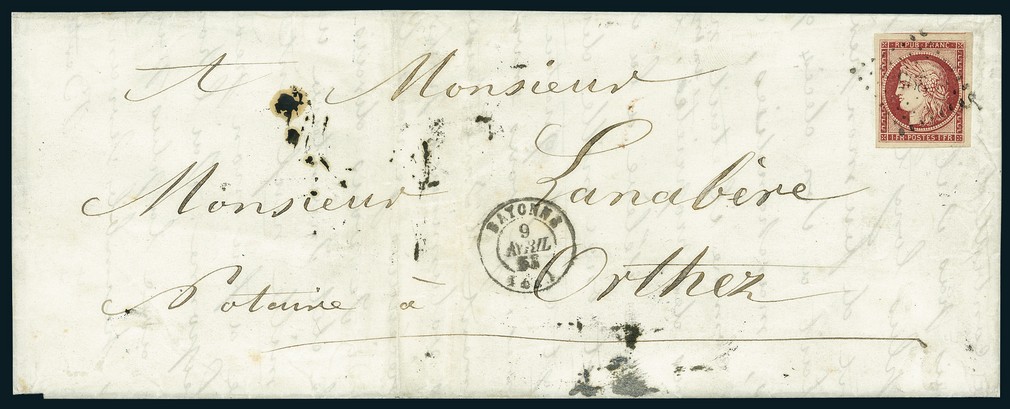 REPUB FRANC
1 FR POSTES 1 FR
A Monsieur
Monsieur Lanabère
BAYONNE
9
AVRIL
53
Notaire à Orthez